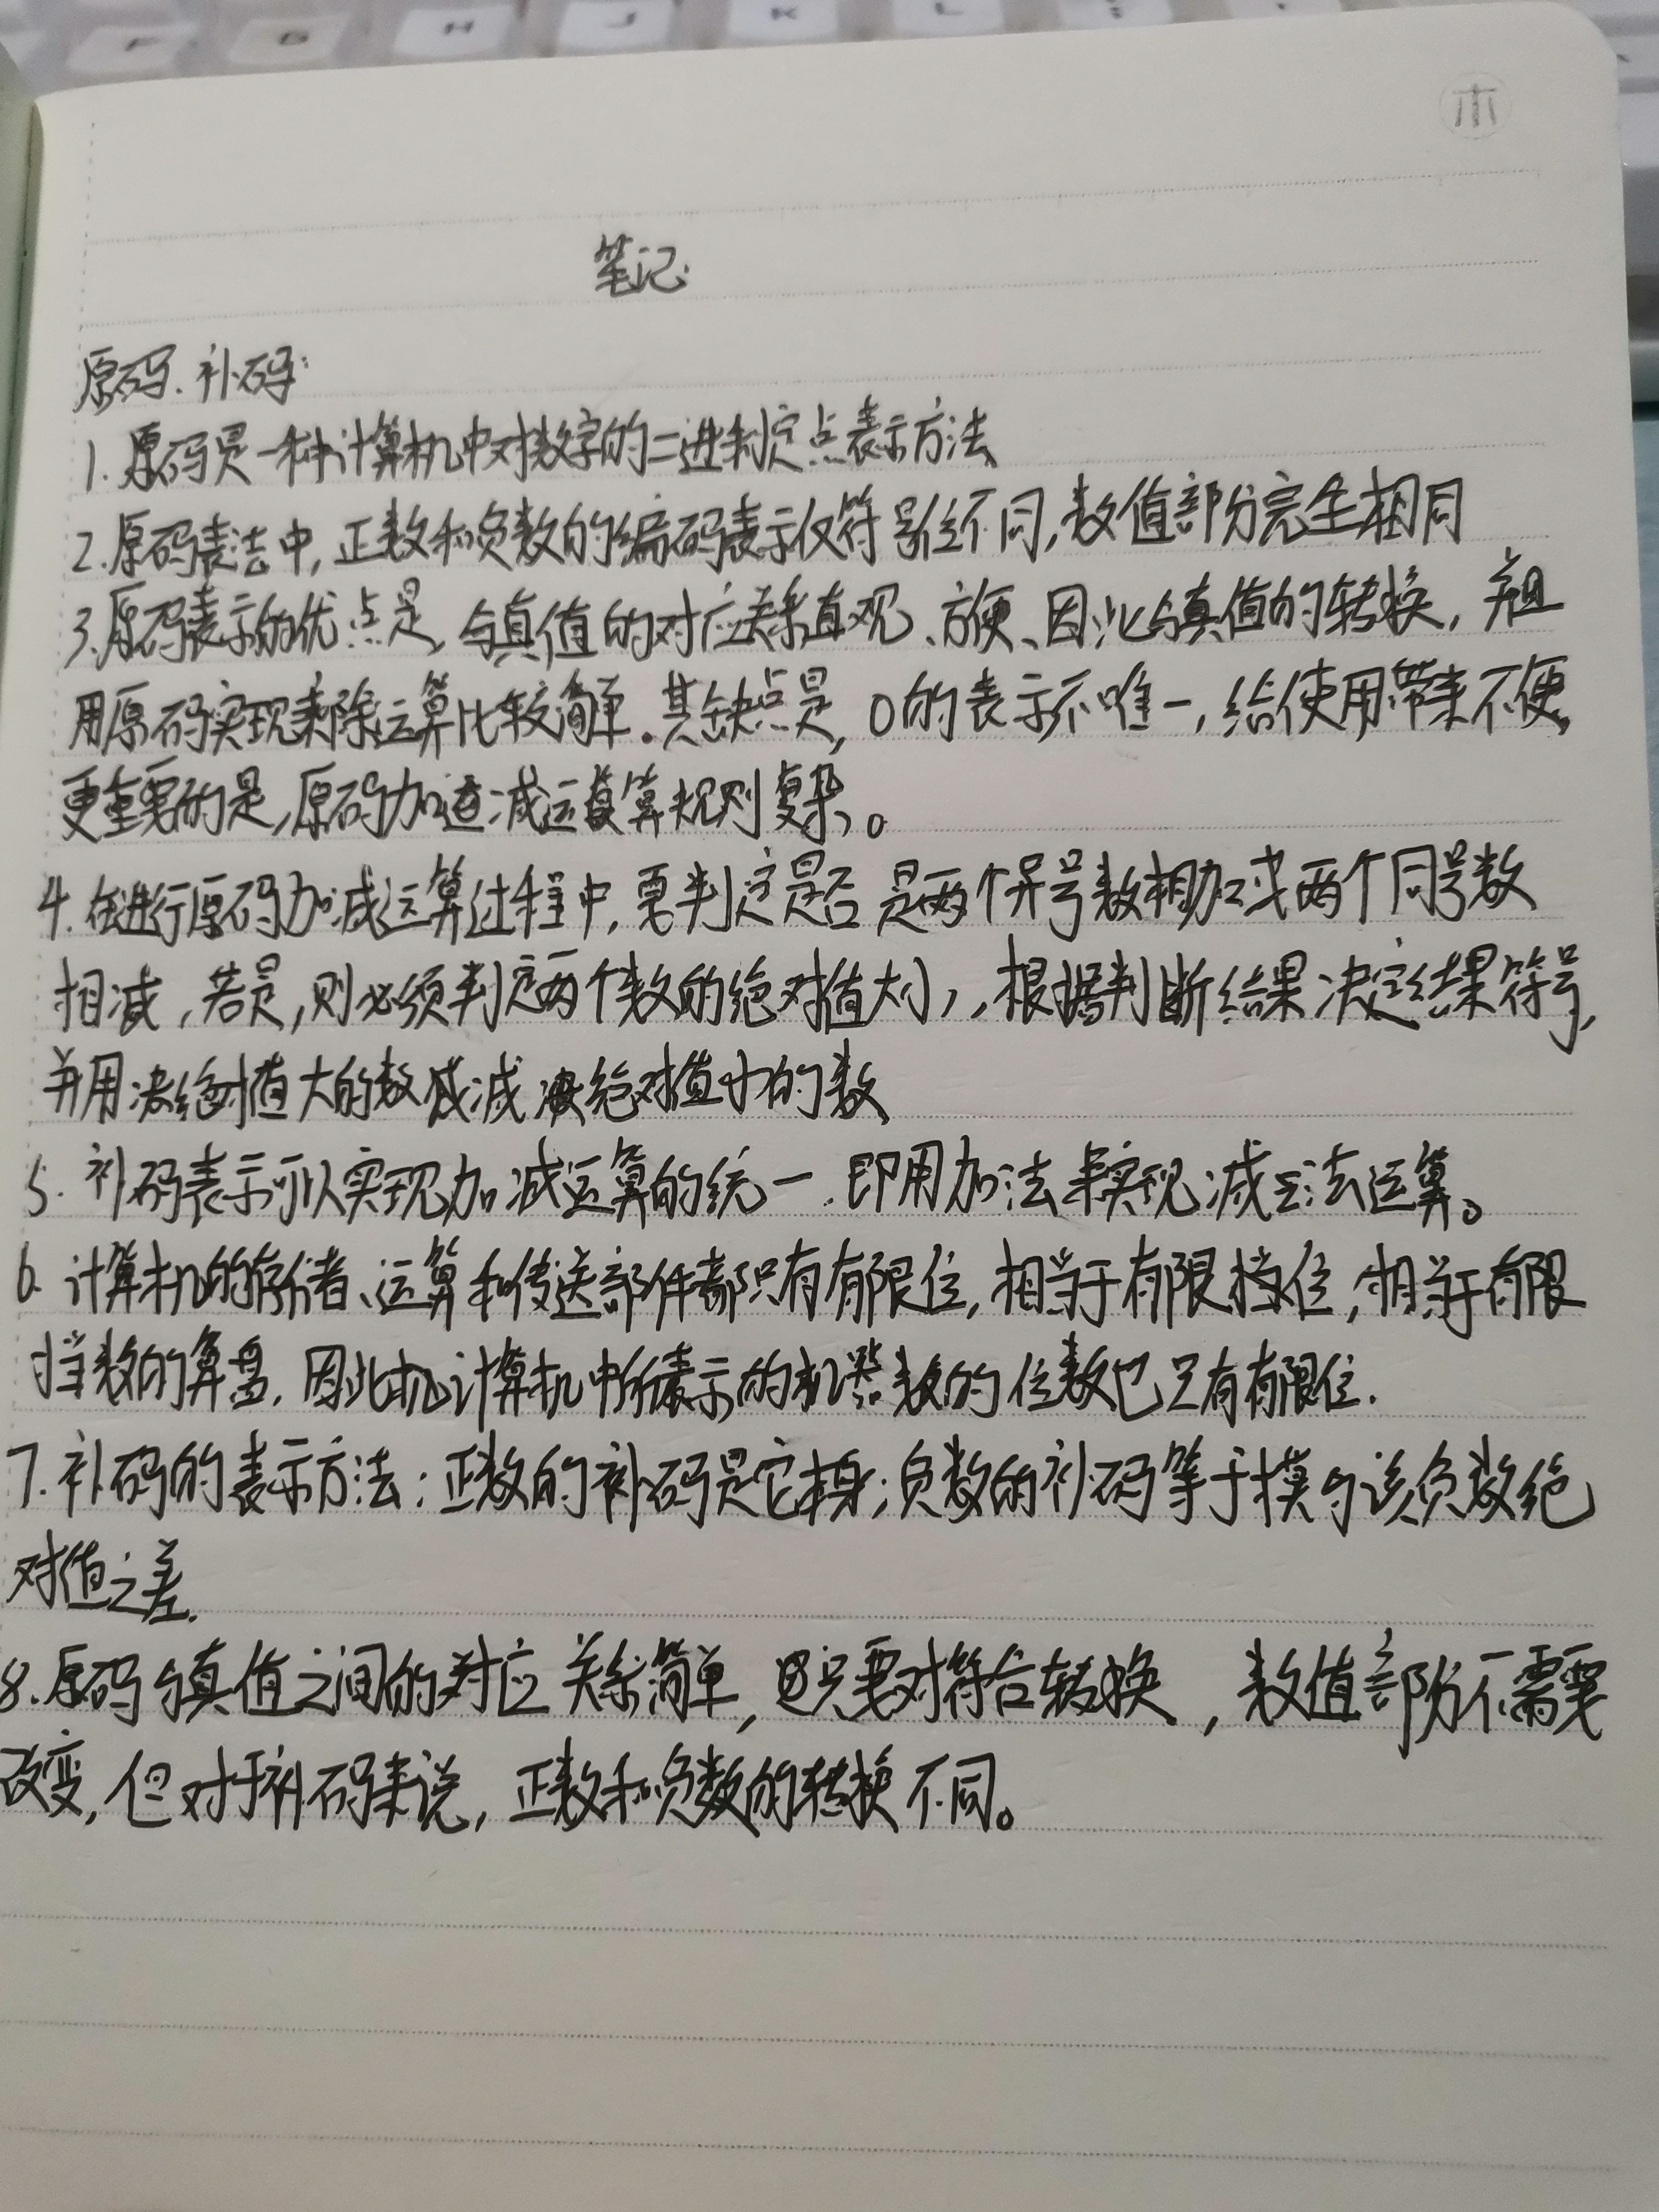 木
笔记
原码、补码:
1. 原码是一种计算机中对数字的二进制定点表示方法
2. 原码表法中,正数和负数的编码表示仅符号位不同,数值部分完全相同
3. 原码表示的优点是,与真值的对应关系直观、方便、因此与真值的转换,并且
用原码实现乘除运算比较简单。其缺点是,0的表示不唯一,给使用带来不便,
更重要的是,原码加减运算规则复杂。
4. 在进行原码加减运算过程中,要判定是否是两个异号数相加或两个同号数
相减,若是,则必须判定两个数的绝对值大小,,根据判断结果决定结果符号,
并用绝对值大的数减绝对值小的数
5. 补码表示可以实现加减运算的统一.即用加法来实现减法运算。
6. 计算机的存储、运算和传送部件都只有有限位,相当于有限档位,相当于有限
档数的算盘.因此计算机中所表示的机器数的位数也只有有限位.
7. 补码的表示方法:正数的补码是它本身;负数的补码等于模与该负数绝
对值之差.
8. 原码与真值之间的对应关系简单,只要对符合转换,数值部分不需要
改变,但对于补码来说,正数和负数的转换不同。